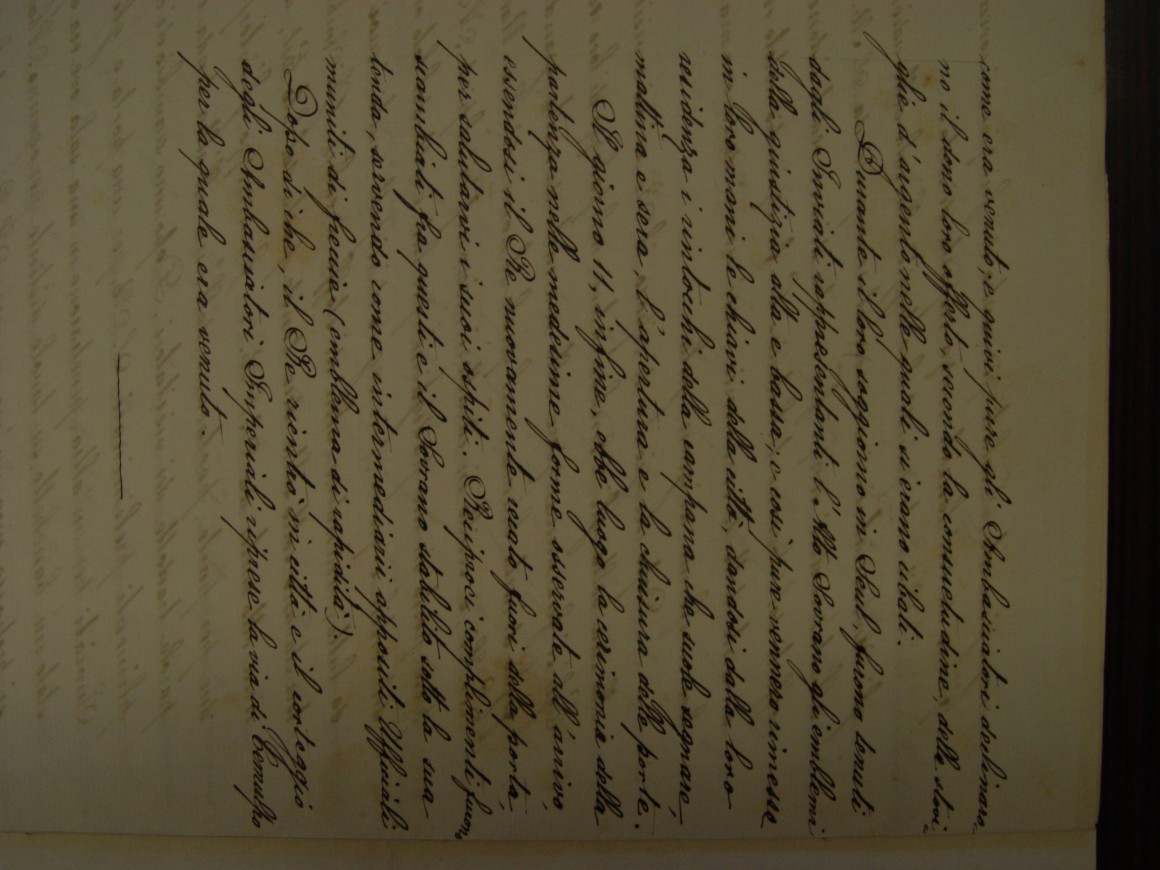 come era venuto, e quivi pure gli Ambasciatori declinaro-
no il dono loro offerto, secondo la consuetudine, delle stovi-
glie d'argento nelle quali si erano cibati.
Durante il loro soggiorno in Seul, furono tenuti
dagli Inviati rappresentanti l'Alto Sovrano gli emblemi
della giustizia alta e bassa, e così pure vennero rimesse
in loro mani le chiavi della città, dandosi dalla loro
residenza i rintocchi della campana che suole segnare,
mattina e sera, l'apertura e la chiusura delle porte.
Il giorno 11, infine, ebbe luogo la cerimonia della
partenza nelle medesime forme osservate all'arrivo,
essendosi il Re nuovamente recato fuori della porta,
per salutarvi i suoi ospiti. Reciproci complimenti furono
scambiati fra questi e il Sovrano stabilito sotto la sua
tenda, servendo come intermediarii appositi Uffiziali
muniti di freccie (emblema di rapidità).
Dopo di che, il Re rientrò in città e il corteggio
degli Ambasciatori Imperiali riprese la via di Cemulpo
per la quale era venuto.